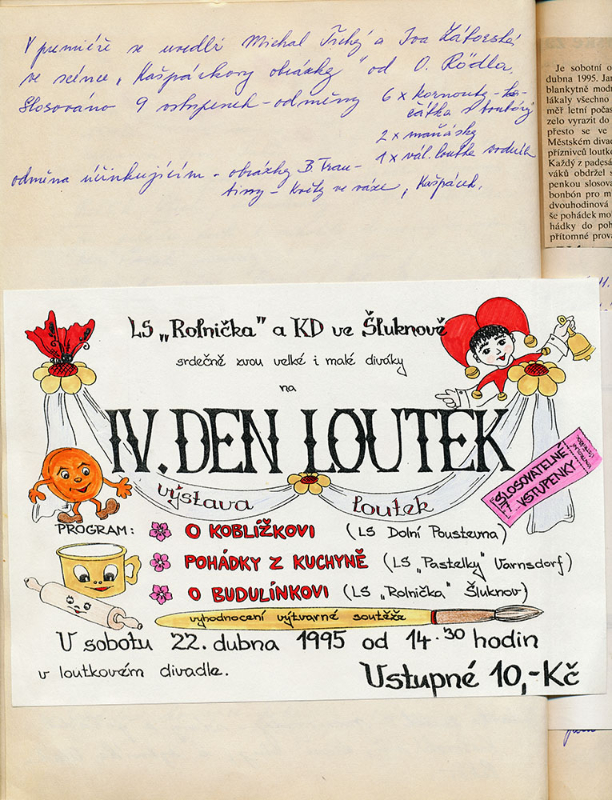 V premiéře se uvedli Michal Tichý a Iva Zátorská
ve scénce „Kašpárkovy obrázky" od O. Rödla.
Slosováno 9 vstupenek - odměny 6 x kornouty
2 x maňásky
1 x vál. loutka vodníka
odměna účinkujícím - obrázky B.
Květy ve váze, Kašpárek.
Je sobotní o
dubna 1995. Jar
blankytně modr
lákaly všechno
měř letní počas
zelo vyrazit do
přesto se ve
Městském divad
příznivců loutko
Každý z padesá
váků obdržel s
penkou slosova
bonbón pro m
dvouhodinová
še pohádek mo
hádky do poh
přítomné prová
LS „Rolnička" a KD ve Šluknově
srdečně zvou velké i malé diváky
na
IV. DEN LOUTEK
výstava loutek
SLOSOVATELNÉ
VSTUPENKY
PROGRAM:
O KOBLÍŽKOVI (LS Dolní Poustevna)
POHÁDKY Z KUCHYNĚ (LS „Pastelky" Varnsdorf)
O BUDULÍNKOVI (LS „Rolnička" Šluknov)
vyhodnocení výtvarné soutěže
V sobotu 22. dubna 1995 od 14.30 hodin
v loutkovém divadle.
Vstupné 10,-Kč